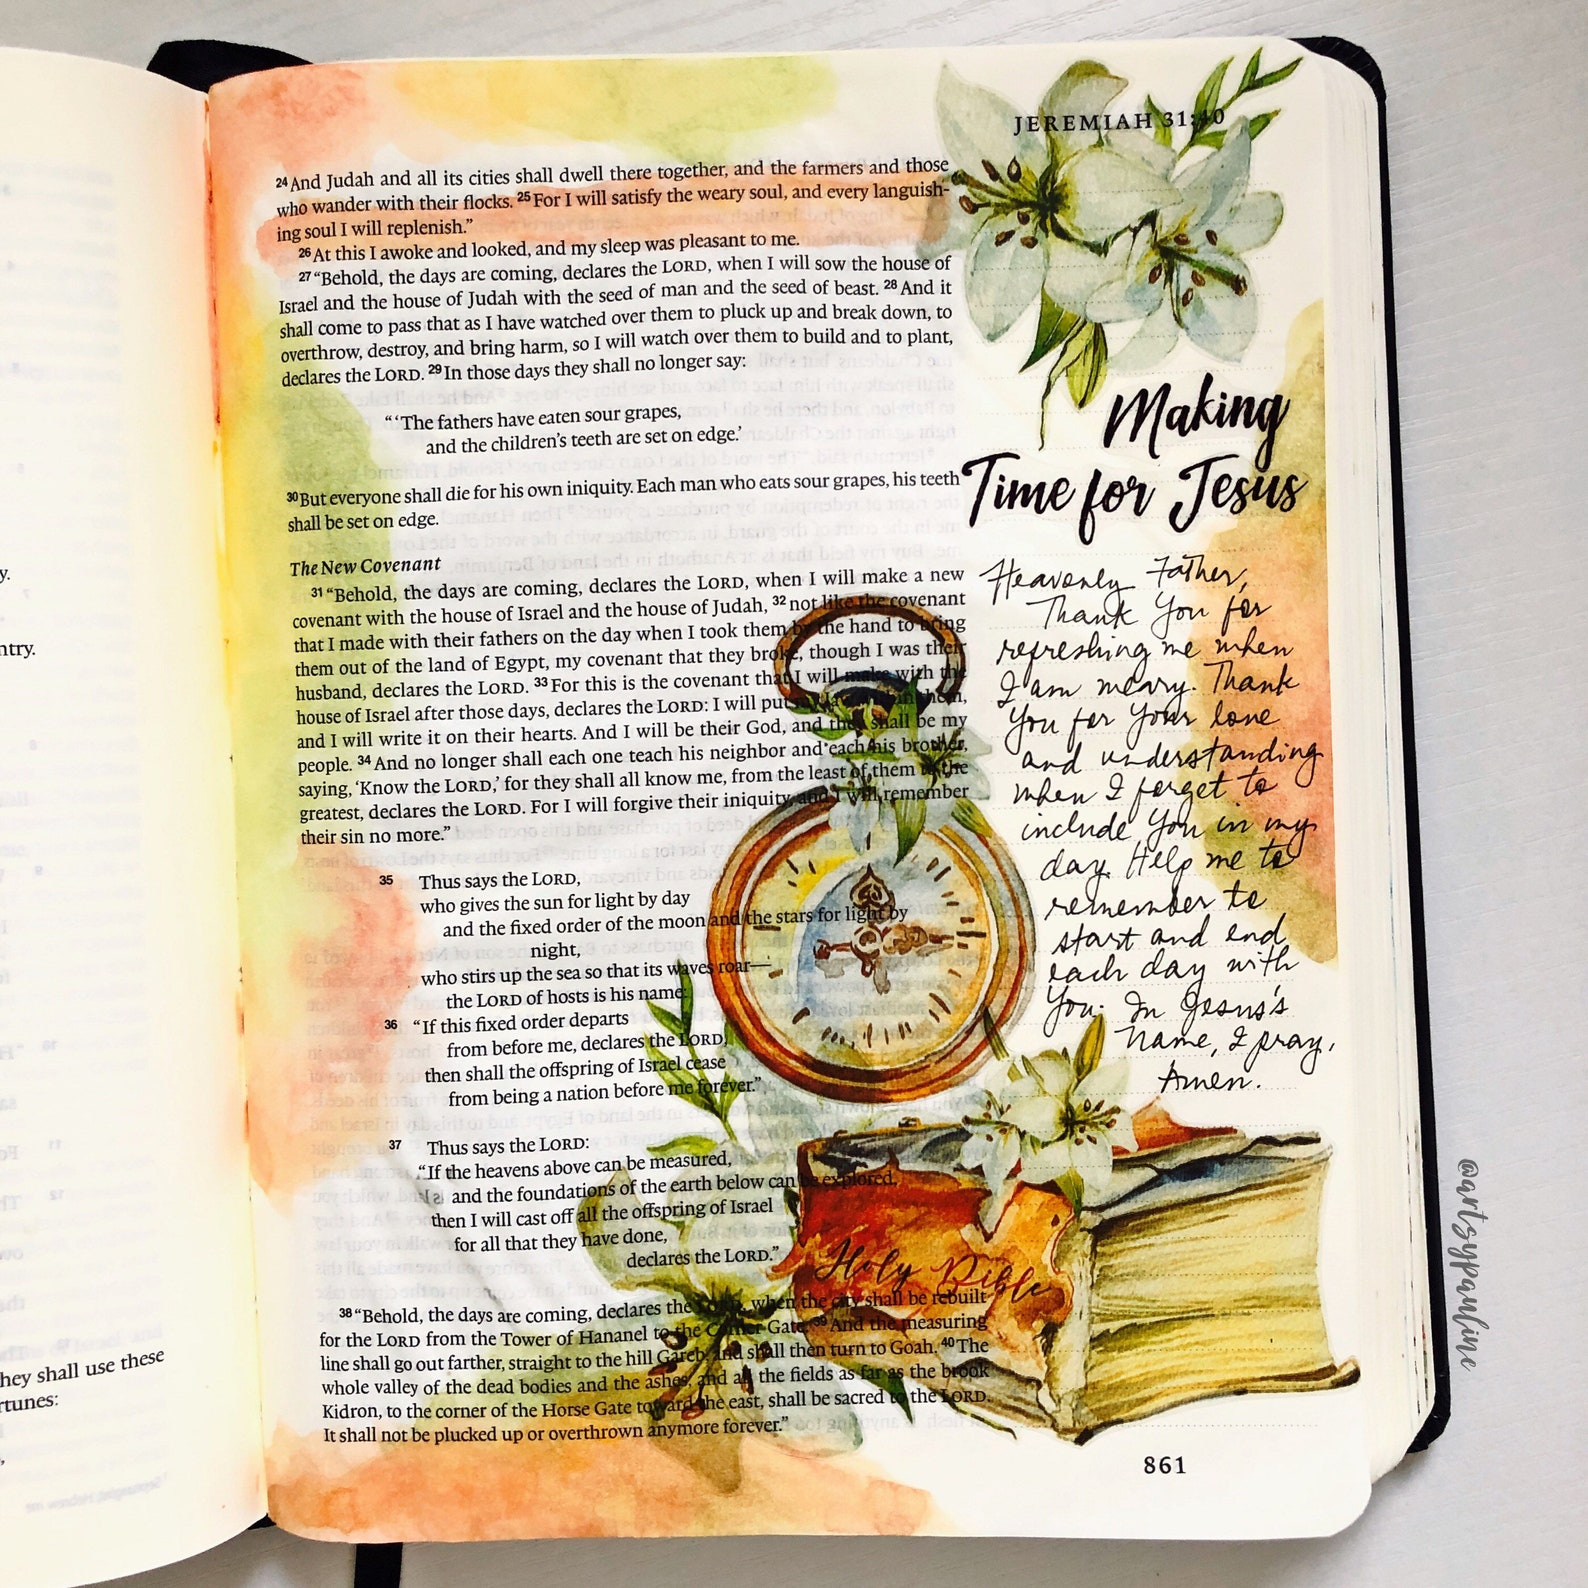 y.
ntry.
hey shall use these
rtunes:
JEREMIAH 31:40
24 And Judah and all its cities shall dwell there together, and the farmers and those
who wander with their flocks. 25 For I will satisfy the weary soul, and every languish-
ing soul I will replenish.”
26 At this I awoke and looked, and my sleep was pleasant to me.
27 “Behold, the days are coming, declares the LORD, when I will sow the house of
Israel and the house of Judah with the seed of man and the seed of beast. 28 And it
shall come to pass that as I have watched over them to pluck up and break down, to
overthrow, destroy, and bring harm, so I will watch over them to build and to plant,
declares the LORD. 29 In those days they shall no longer say:
“‘The fathers have eaten sour grapes,
and the children’s teeth are set on edge.’
30 But everyone shall die for his own iniquity. Each man who eats sour grapes, his teeth
shall be set on edge.
The New Covenant
31 “Behold, the days are coming, declares the LORD, when I will make a new
covenant with the house of Israel and the house of Judah, 32 not like the covenant
that I made with their fathers on the day when I took them by the hand to bring
them out of the land of Egypt, my covenant that they broke, though I was their
husband, declares the LORD. 33 For this is the covenant that I will make with the
house of Israel after those days, declares the LORD: I will put my law within them,
and I will write it on their hearts. And I will be their God, and they shall be my
people. 34 And no longer shall each one teach his neighbor and each his brother,
saying, ‘Know the LORD,’ for they shall all know me, from the least of them to the
greatest, declares the LORD. For I will forgive their iniquity, and I will remember
their sin no more.”
35 Thus says the LORD,
who gives the sun for light by day
and the fixed order of the moon and the stars for light by
night,
who stirs up the sea so that its waves roar—
the LORD of hosts is his name:
36 “If this fixed order departs
from before me, declares the LORD,
then shall the offspring of Israel cease
from being a nation before me forever.”
37 Thus says the LORD:
“If the heavens above can be measured,
and the foundations of the earth below can be explored,
then I will cast off all the offspring of Israel
for all that they have done,
declares the LORD.”
38 “Behold, the days are coming, declares the LORD, when the city shall be rebuilt
for the LORD from the Tower of Hananel to the Corner Gate. 39 And the measuring
line shall go out farther, straight to the hill Gareb, and shall then turn to Goah. 40 The
whole valley of the dead bodies and the ashes, and all the fields as far as the brook
Kidron, to the corner of the Horse Gate toward the east, shall be sacred to the LORD.
It shall not be plucked up or overthrown anymore forever.”
Making
Time for Jesus
Heavenly Father,
Thank You for
refreshing me when
I am weary. Thank
You for Your love
and understanding
when I forget to
include You in my
day. Help me to
remember to
start and end
each day with
You. In Jesus's
Name, I pray,
Amen.
Holy Bible
861
@artsypauline